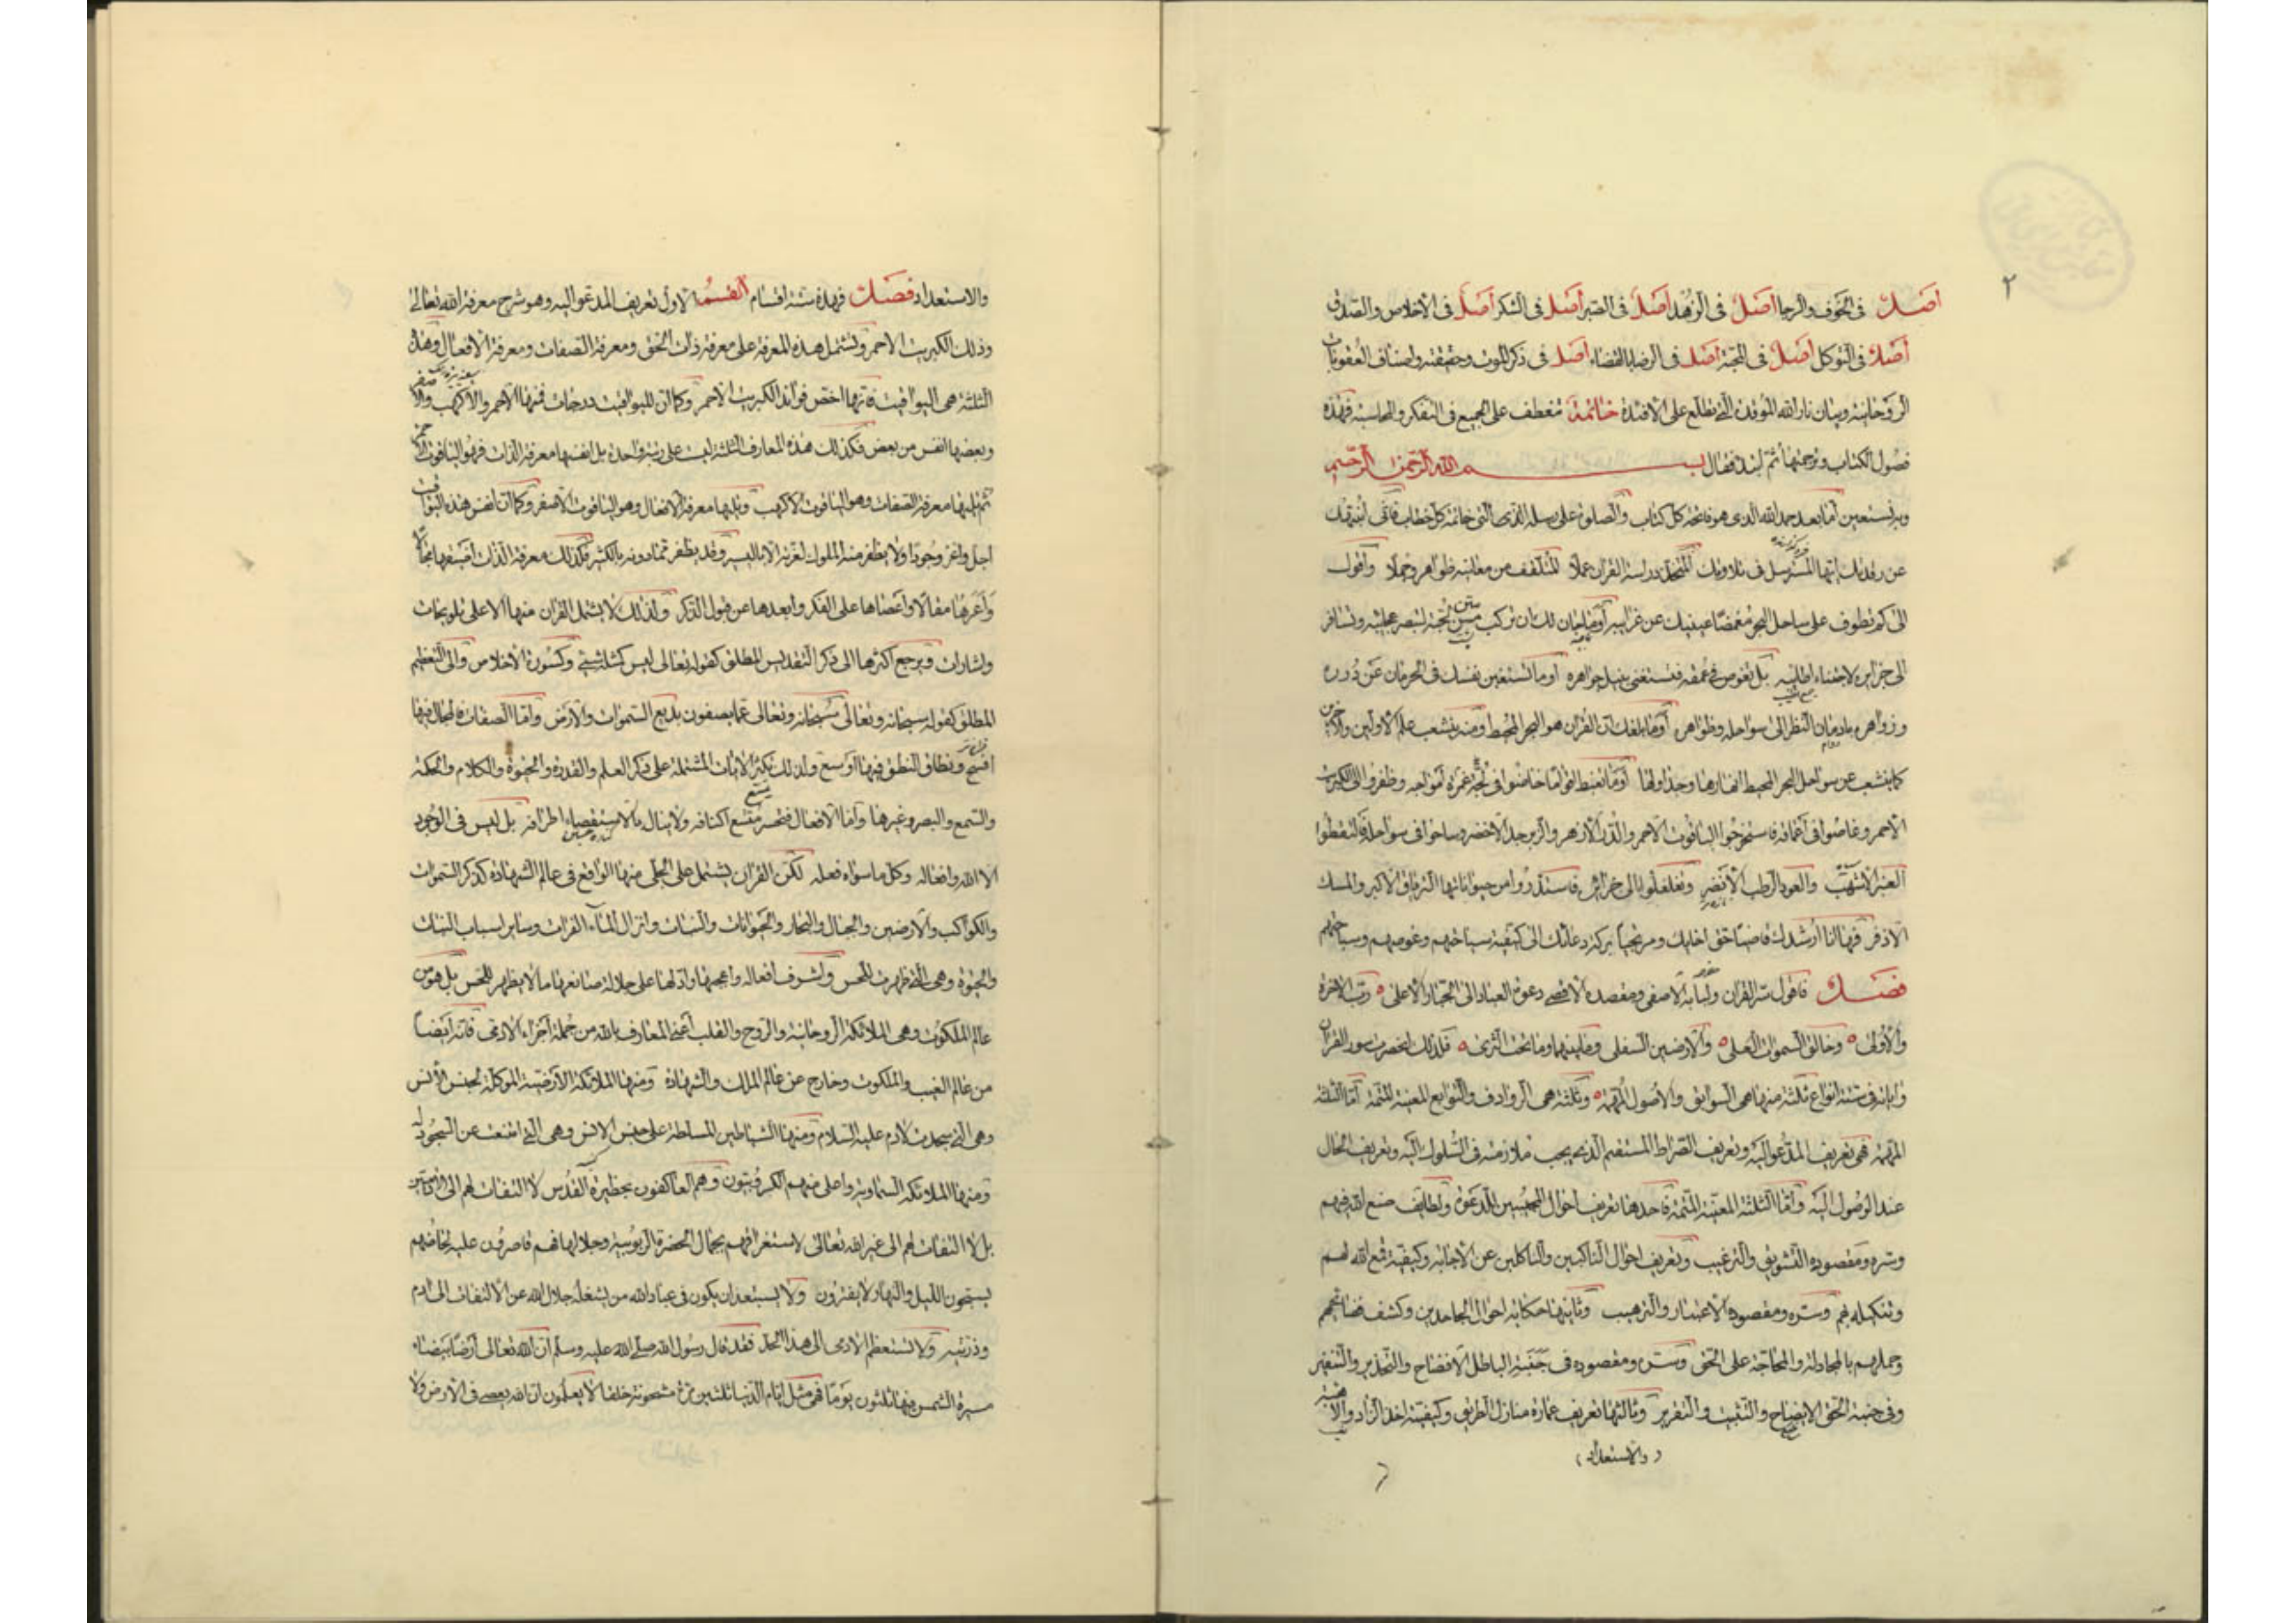 ٢
أصل في الخوف والرجا أصل في الزهد أصل في الصبر أصل في الشكر أصل في الاخلاص والصدق
أصل في التوكل أصل في المحبة أصل في الرضا بالقضاء أصل في ذكر الموت وحقيقته واصناف العقوبات
الروحانية وبيان نار الله الموقدة التي تطلع على الافئدة خاتمة تنعطف على الجميع في التفكر والمحاسبة فهذه
فصول الكتاب وترجمتها ثم ابتدا فقال بسم الله الرحمن الرحيم
وبه نستعين اما بعد حمد الله الذي هو فاتحة كل كتاب والصلوة على رسله التي خاتمة كل خطاب فاني انبهك
عن رقدتك ايها المسترسل في تلاوتك المتخذ دراسة القران عملا المتلقف من معانيه ظواهر وجملا واقول
الى كم تطوف على ساحل البحر مغمضا عينيك عن غرايبه أوما حان لك ان تركب متن لجته لتبصر عجايبه وتسافر
الى جزايره لاجتناء اطايبه بل تغوص في عمقه فتستغني بنيل جواهره أوما تستعين نفسك في الحرمان عن درره
وزواهره بادمان النظر الى سواحله وظواهره أوما بلغك ان القران هو البحر المحيط ومنه ينشعب علم الاولين والاخرين
كما ينشعب عن سواحل البحر المحيط انهارها وجداولها أوما تغبط اقواما خاضوا في لجة غمرة امواجه وظفروا الى الكبريت
الاحمر وغاصوا في اعماقه فاستخرجوا الياقوت الاحمر والدر الازهر والزبرجد الاخضر وساحوا في سواحله فالتقطوا
العنبر الاشهب والعود الرطب الانضر وتغلغلوا الى جزايره فاستدروا من حيواناتها الترياق الاكبر والمسك
الاذفر فها انا ارشدك قاضيا حق اخايك ومرتجيا بركة دعائك الى كيفية سياحتهم وغوصهم وسباحتهم
فصل فاقول سر القران ولبابه الاصفى ومقصده الاقصى دعوة العباد الى الجبار الاعلى رب الاخرة
والاولى وخالق السموات العلى والارضين السفلى وما بينهما وما تحت الثرى فلذلك انحصرت سور القران
واياته في ستة انواع ثلثة منها هي السوابق والاصول المهمة وثلثة هي الروادف والتوابع المعينة المتمة أما الثلثة
المهمة فهي تعريف المدعو اليه وتعريف الصراط المستقيم الذي يجب ملازمته في السلوك اليه وتعريف الحال
عند الوصول اليه وأما الثلثة المعينة المتمة فاحدها تعريف احوال المجيبين للدعوة ولطايف صنع الله فيهم
وسره ومقصوده التشويق والترغيب وتعريف احوال الناكبين والناكلين عن الاجابة وكيفية قمع الله لهم
وتنكيله لهم وسره ومقصوده الاعتبار والترهيب وثانيها حكاية احوال الجاحدين وكشف فضائحهم
وجهلهم بالمجادلة والمحاجة على الحق وسره ومقصوده في جنبة الباطل الافضاح والتحذير والتنفير
وفي جنبة الحق الايضاح والتثبيت والتقرير وثالثها تعريف عمارة منازل الطريق وكيفية اخذ الزاد والاهبة
(والاستعداد)
والاستعداد فصل فهذه ستة اقسام القسم الاول تعريف المدعو اليه وهو شرح معرفة الله تعالى
وذلك الكبريت الاحمر وتشتمل هذه المعرفة على معرفة ذات الحق ومعرفة الصفات ومعرفة الافعال وهذه
الثلثة هي اليواقيت فانها اخص فوائد الكبريت الاحمر وكما ان لليواقيت درجات فمنها الاحمر والاكهب والاصفر
وبعضها انفس من بعض فكذلك هذه المعارف الثلثة ليست على رتبة واحدة بل انفسها معرفة الذات فهو الياقوت الاحمر
ثم يليها معرفة الصفات وهو الياقوت الاكهب ويليها معرفة الافعال وهو الياقوت الاصفر وكما ان انفس هذه اليواقيت
اجل واعز وجودا ولا يظفر منه الملوك لعزته الا باليسير وقد يظفر مما دونه بالكثير فكذلك معرفة الذات اضيقها مجالا
وأعزها مقالا وأعصاها على الفكر وابعدها عن قبول الذكر ولذلك لا يشتمل القران منها الا على تلويحات
واشارات ويرجع اكثرها الى ذكر التقديس المطلق كقوله تعالى ليس كمثله شيء وكسورة الاخلاص والى التعظيم
المطلق كقوله سبحانه وتعالى سبحانه وتعالى عما يصفون بديع السموات والارض واما الصفات فالمجال فيها
افسح ونطاق النطق فيها أوسع ولذلك تكثر الايات المشتملة على ذكر العلم والقدرة والحيوة والكلام والحكمة
والسمع والبصر وغيرها واما الافعال فبحر متسع اكنافه ولا ينال بالاستقصاء اطرافه بل ليس في الوجود
الا الله وافعاله وكل ما سواه فعله لكن القران يشتمل على الجلي منها الواقع في عالم الشهادة كذكر السموات
والكواكب والارضين والجبال والبحار والحيوانات والنبات وانزال الماء الفرات وساير اسباب النبات
والحيوة وهي التي ظهرت للحس واشرف افعاله واعجبها وادلها على جلالة صانعها ما لا يظهر للحس بل هو من
عالم الملكوت وهي الملائكة الروحانية والروح والقلب أعني المعارف بالله من جملة اجزاء الادمي فانه ايضا
من عالم الغيب والملكوت وخارج عن عالم الملك والشهادة ومنها الملائكة الارضية الموكلة بجنس الانس
وهي التي سجدت لادم عليه السلام ومنها الشياطين المسلطة على جنس الانس وهي التي امتنعت عن السجود له
ومنها الملائكة السماوية واعلى منهم الكروبيون وهم العاكفون بحظيرة القدس لا التفات لهم الى الادميين
بل لا التفات لهم الى غير الله تعالى لاستغراقهم بجمال الحضرة الربوبية وجلالها فهم قاصرون عليه لحاظهم
يسبحون الليل والنهار لا يفترون ولا يستبعد ان يكون في عباد الله من يشغله جلال الله عن الالتفات الى ادم
وذريته ولا تستعظم الادمي الى هذا الحد فقد قال رسول الله صلى الله عليه وسلم ان الله تعالى أرضا بيضاء
مسيرة الشمس فيها ثلثون يوما هي مثل ايام الدنيا ثلثين مرة مشحونة خلقا لا يعلمون ان الله يعصى في الارض ولا